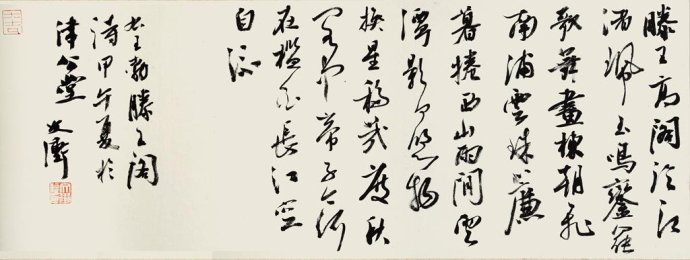 滕王高閣臨江
渚珮玉鳴鑾罷
歌舞畫棟朝飛
南浦雲珠簾
暮捲西山雨閒雲
潭影日悠悠物
換星移幾度秋
閣中帝子今何
在檻外長江空
自流
書王勃滕王閣
詩甲午夏於
堂